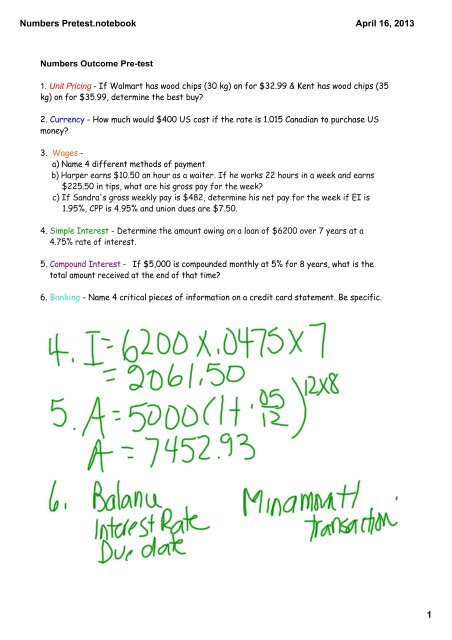 Numbers Pretest.notebook
April 16, 2013
Numbers Outcome Pre-test
1. Unit Pricing - If Walmart has wood chips (30 kg) on for $32.99 & Kent has wood chips (35
kg) on for $35.99, determine the best buy?
2. Currency - How much would $400 US cost if the rate is 1.015 Canadian to purchase US
money?
3. Wages -
a) Name 4 different methods of payment
b) Harper earns $10.50 an hour as a waiter. If he works 22 hours in a week and earns
$225.50 in tips, what are his gross pay for the week?
c) If Sandra's gross weekly pay is $482, determine his net pay for the week if EI is
1.95%, CPP is 4.95% and union dues are $7.50.
4. Simple Interest - Determine the amount owing on a loan of $6200 over 7 years at a
4.75% rate of interest.
5. Compound Interest - If $5,000 is compounded monthly at 5% for 8 years, what is the
total amount received at the end of that time?
6. Banking - Name 4 critical pieces of information on a credit card statement. Be specific.
4. I = 6200 x .0475 x 7
= 2061.50
5. A = 5000(1+ .05/12)^12x8
A = 7452.93
6. Balance
Interest Rate
Due date
Min amount
transaction
1